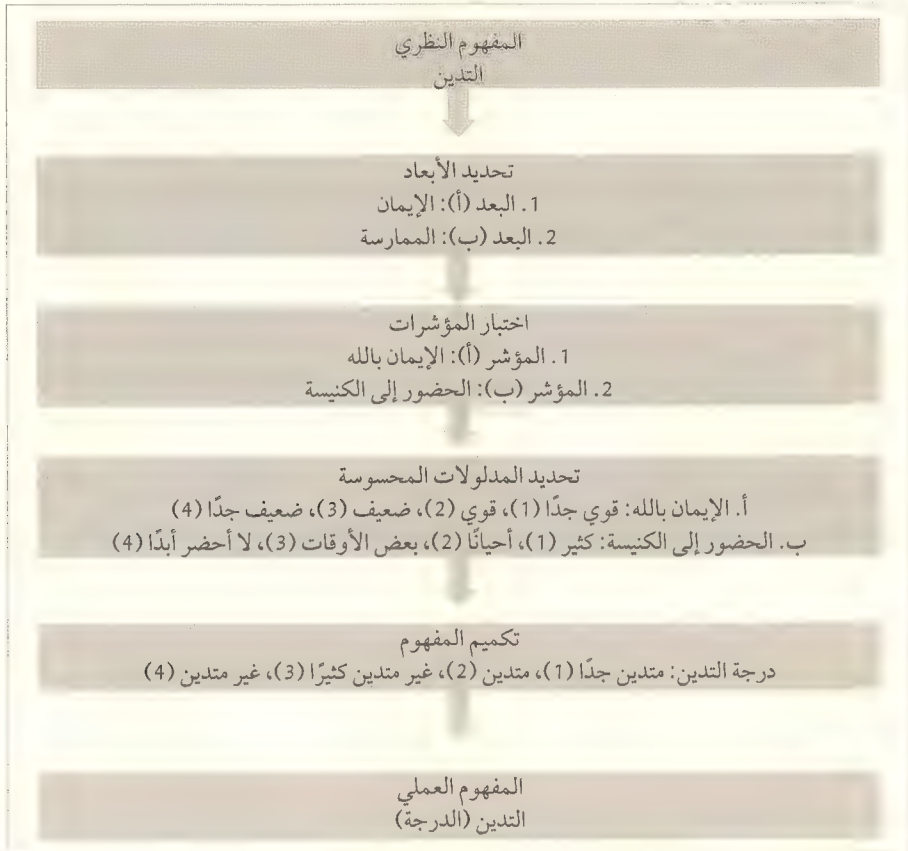 المفهوم النظري
التدين
تحديد الأبعاد
1. البعد (أ): الإيمان
2. البعد (ب): الممارسة
اختبار المؤشرات
1. المؤشر (أ): الإيمان بالله
2. المؤشر (ب): الحضور إلى الكنيسة
تحديد المدلولات المحسوسة
أ. الإيمان بالله: قوي جدًا (1)، قوي (2)، ضعيف (3)، ضعيف جدًا (4)
ب. الحضور إلى الكنيسة: كثير (1)، أحيانًا (2)، بعض الأوقات (3)، لا أحضر أبدًا (4)
تكميم المفهوم
درجة التدين: متدين جدًا (1)، متدين (2)، غير متدين كثيرًا (3)، غير متدين (4)
المفهوم العملي
التدين (الدرجة)